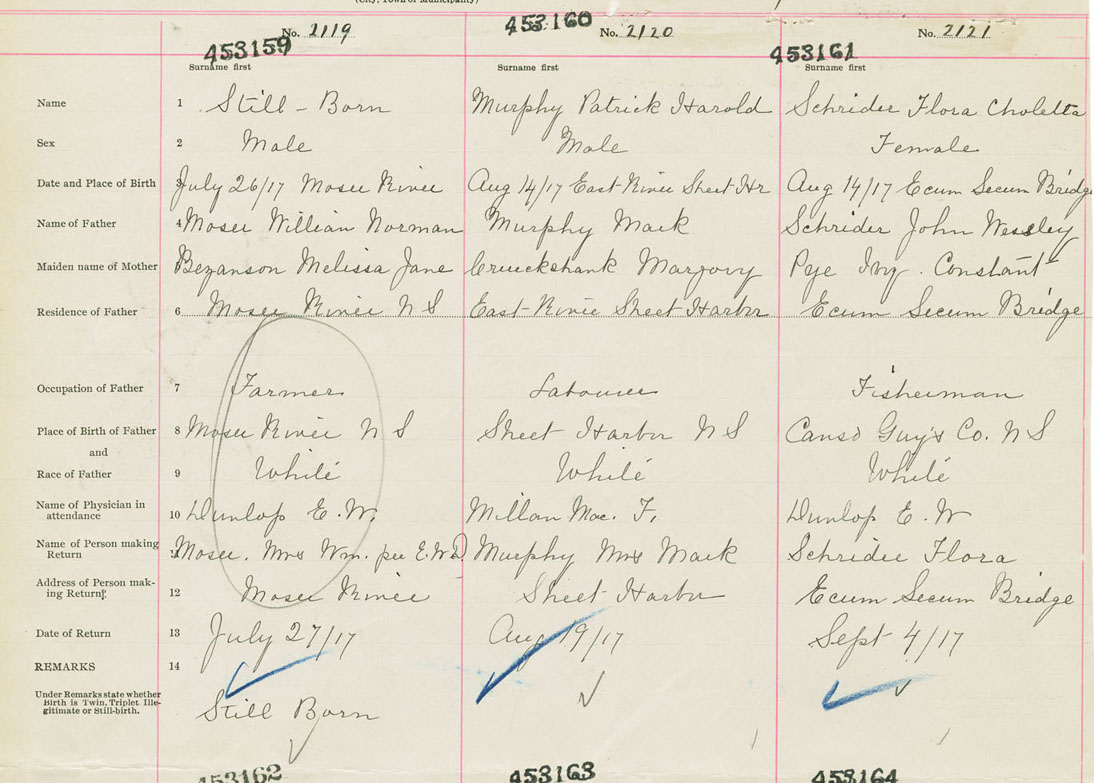 (City, Town or Municipality)
453159 No. 2119 453160 No. 2120 453161 No. 2121
Surname first Surname first Surname first
Name 1 Still-Born Murphy Patrick Harold Schrider Flora Choletta
Sex 2 Male Male Female
Date and Place of Birth 3 July 26/17 Moser River Aug 14/17 East River Sheet Hr Aug 14/17 Ecum Secum Bridge
Name of Father 4 Moser William Norman Murphy Mack Schrider John Wessley
Maiden name of Mother Bezanson Melissa Jane Cruickshank Margory Pye Ivy Constant
Residence of Father 6 Moser River N S East River Sheet Harbor Ecum Secum Bridge
Occupation of Father 7 Farmer Labourer Fisherman
Place of Birth of Father 8 Moser River N S Sheet Harbor N S Canso Guy's Co. N S
and
Race of Father 9 White White White
Name of Physician in
attendance 10 Dunlop E. W. Millan Mac. F. Dunlop E. W
Name of Person making
Return 11 Moser. Mrs Wm. per E.W.D. Murphy Mrs Mack Schrider Flora
Address of Person mak-
ing Return 12 Moser River Sheet Harbor Ecum Secum Bridge
Date of Return 13 July 27/17 Aug 19/17 Sept 4/17
REMARKS 14
Under Remarks state whether
Birth is Twin, Triplet, Ille-
gitimate or Still-birth. Still Born
453162 453163 453164